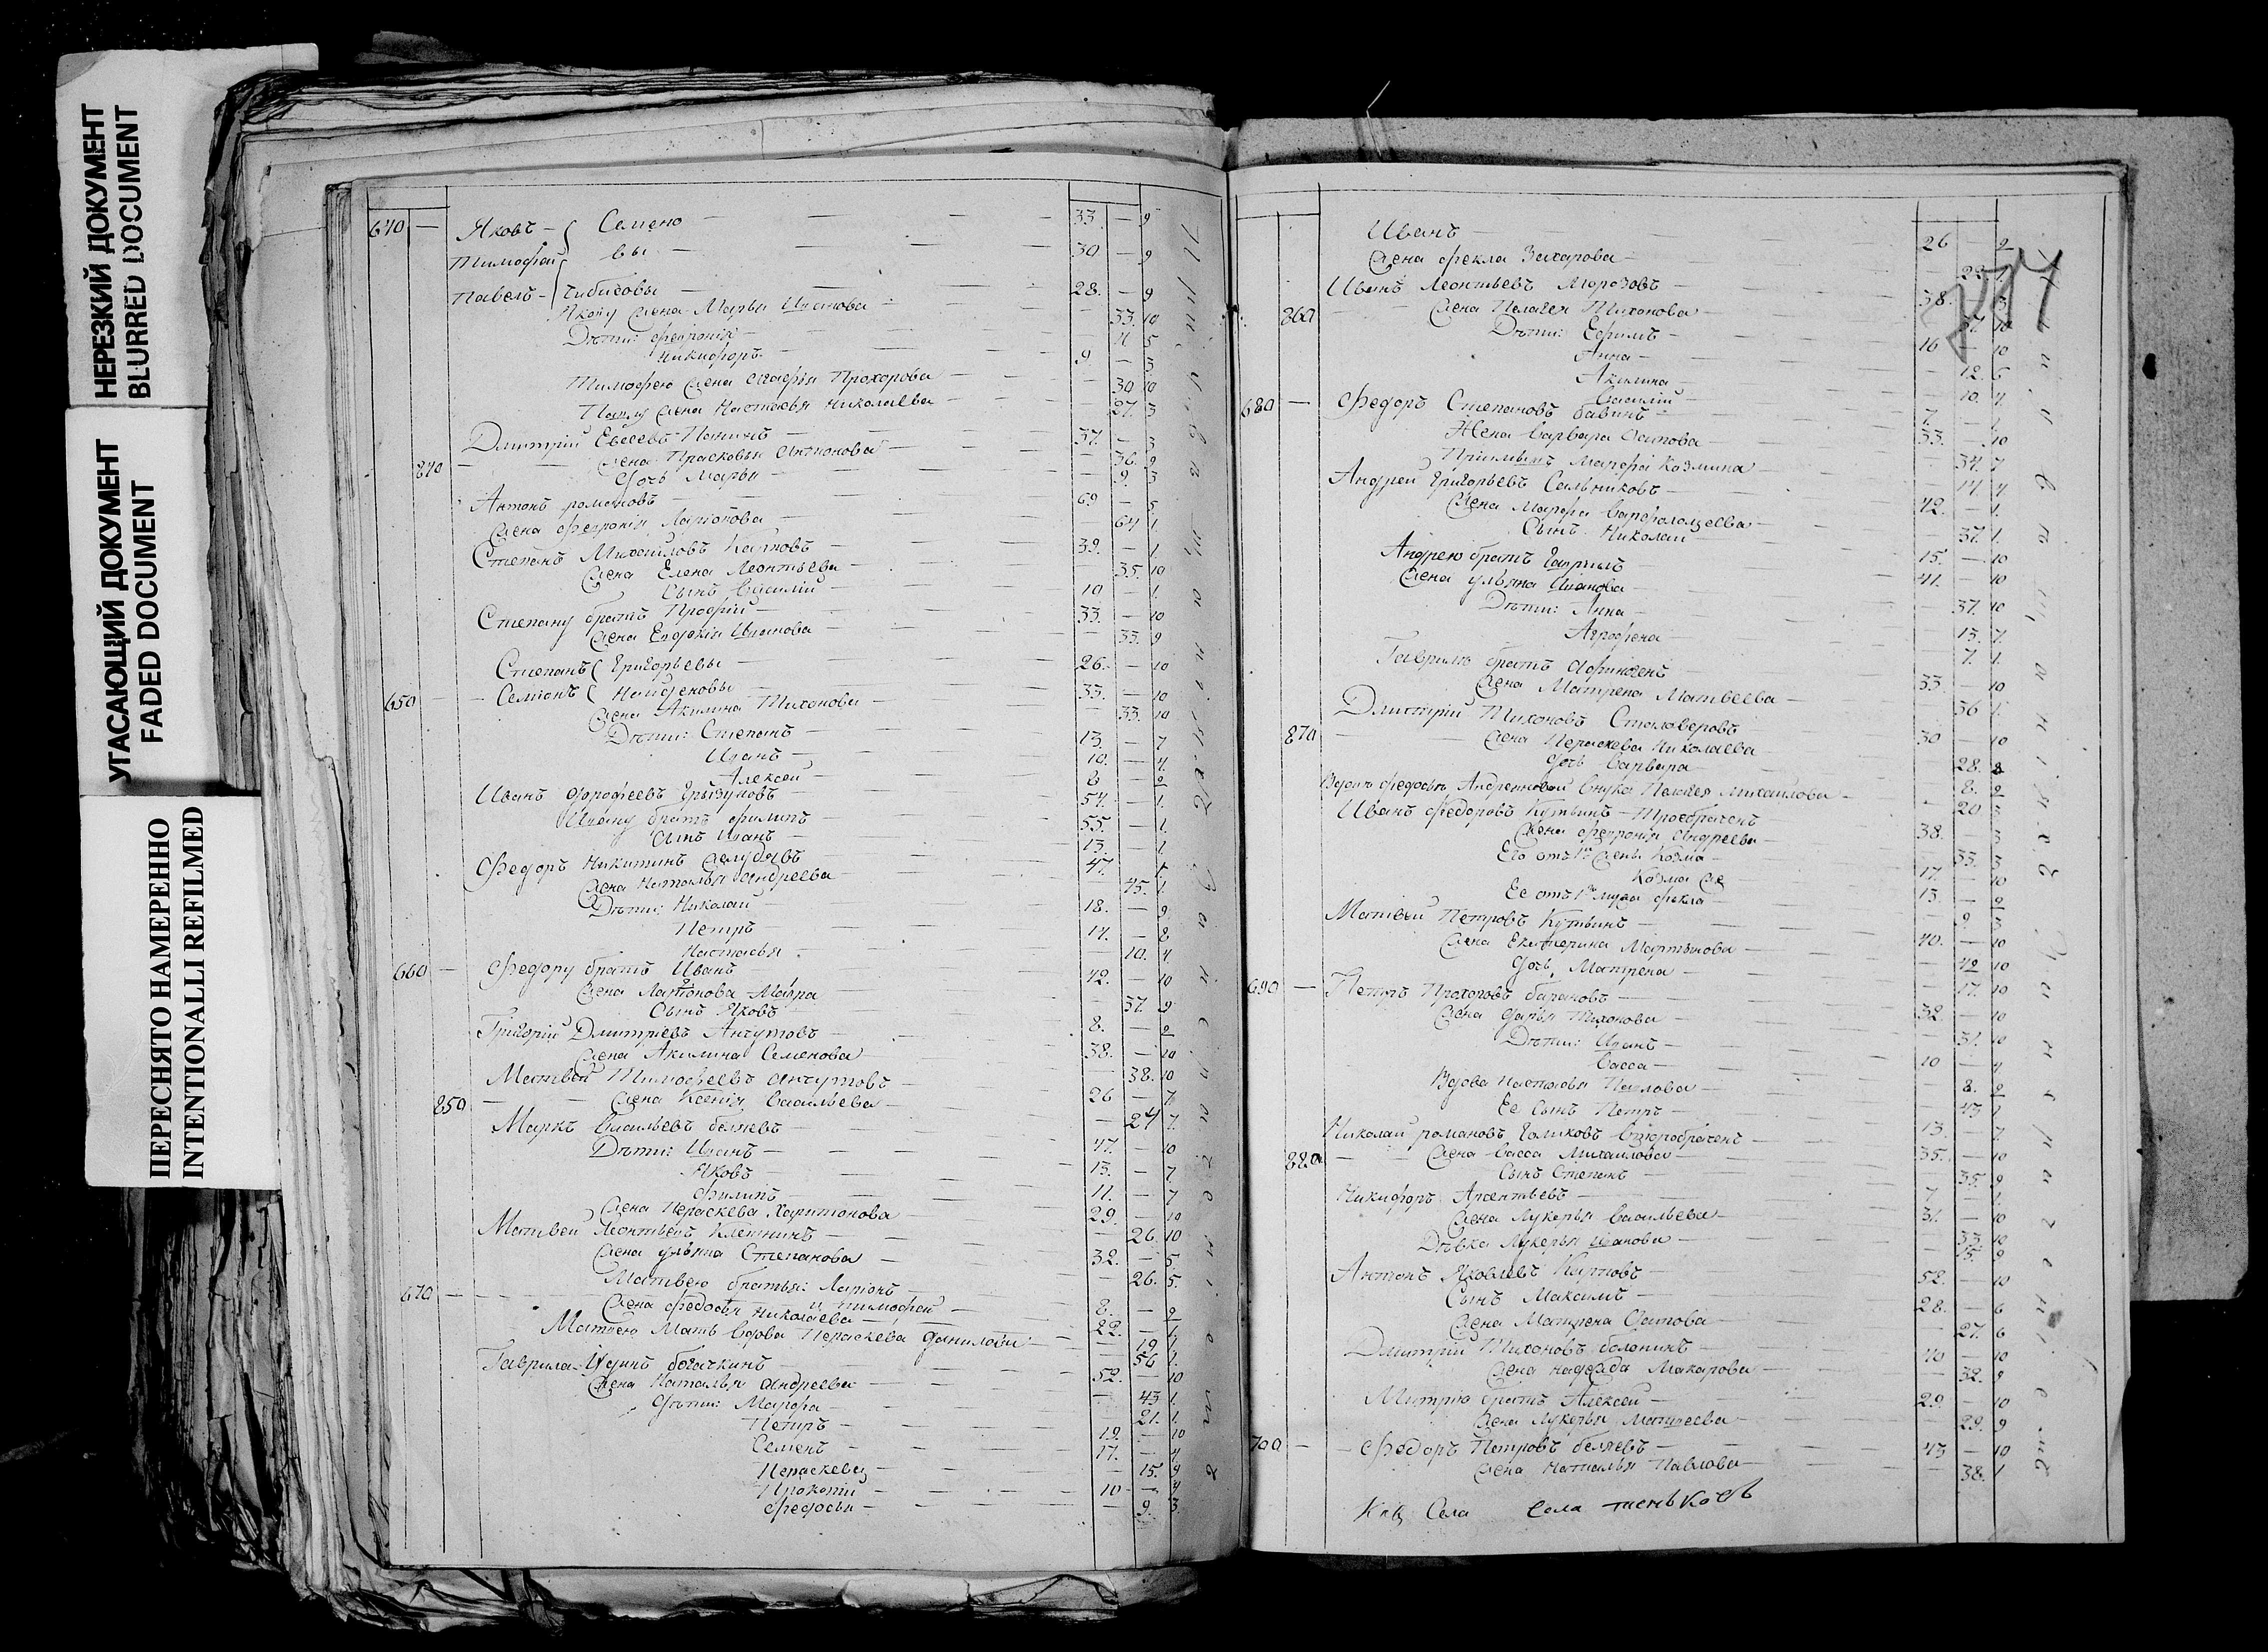 НЕРЕЗКИЙ ДОКУМЕНТ
BLURRED DOCUMENT
УГАСАЮЩИЙ ДОКУМЕНТ
FADED DOCUMENT
ПЕРЕСНЯТО НАМЕРЕННО
INTENTIONALLI REFILMED
640 — Яковъ — Семено 33 — 9
Тимофей вы 30 — 9
Павелъ — Чибисовы 28. — 9
Якову жена Марья Иванова 33. 10
Дѣти: Феврония 11 5
Никифоръ 9 — 3
Тимофею жена Агафья Прохорова 30 10
Павлу жена Настасья Николаева 27. 3
Дмитрий Евсеевъ Панинъ 37. — 3
840 жена Прасковья Антонова 36. 9
Дочь Марья 9. 3
Антонъ романовъ 69 — 5
жена Феврония Ларионова 64 1.
Степанъ Михайловъ Карповъ 39. — 1.
жена Елена Леонтьева 35. 10
Сынъ Василий 10 — 1.
Степану братъ Профий 33. — 10
жена Евдокия Иванова 33. 9
Степанъ Григорьевы 26. — 10
650 — Семионъ Найденовы 33. — 10
жена Акилина Тихонова 33. 10
Дѣти: Степанъ 13. — 7
Иванъ 10. — 4.
Алексей 8 — 2
Иванъ Дорофеевъ Грызуновъ 54. — 1.
Ивану братъ Филипъ 55. — 1.
Сынъ Иванъ 13. — 1
Федоръ Никитинъ 47. — 1.
жена Наталья Андреева 45. 1.
Дѣти: Николай 18. — 9
Петръ 14. — 8
Настасья 10. 4
660 — Федору братъ Иванъ 42. — 10
жена Ларионова Мавра 37. 9
Сынъ Яковъ 8. — 2
Григорий Дмитриевъ Анчутовъ 38. — 10
жена Акилина Семенова 38. 10
Матвей Тимофеевъ Анчутовъ 26 — 7
850 жена Ксения Васильева 24 7.
Маркъ Васильевъ беляевъ 47. — 10
Дѣти: Иванъ 13. — 7
Яковъ 11. — 7
Филипъ
жена Пераскева Харитонова 26. 10
Матвей Леонтьевъ 32. — 5
жена ульяна Степанова 26. 5.
670 Матвею братья: Ларионъ 8. — 2
и тимофей 22. — 1
жена Федосья Николаева 19. 1
Матвею Мать вдова Пераскева Данилова 56 1.
Гаврила Юдинъ богачкинъ 52. — 10
жена Наталья Андреева 43 1.
Дѣти: Марфа 21. 1.
Петръ 19. — 10
Семенъ 17. — 4
Пераскева 15. 9
Прокопи 10 — 4
Федосья 9. 3
Иванъ 26 — 2
жена Фекла Захарова 22. 1
Иванъ Леонтьевъ Морозовъ 38. — 3
860 жена Пелагея Тихонова 37. 10
Дѣти: Ефимъ 16 — 10
Анна 12. 6
Акилина 10. 4.
Василий 7. — 1.
680 — Федоръ Степановъ бабинъ 33. — 10
Жена Варвара Осипова 34. 7
Приемышъ Марфа Козмина 14. 4
Андрей Григорьевъ Сальниковъ 42. — 1.
жена Марфа Варфоломеева 37. 1.
Сынъ Николай 15. — 10
Андрею братъ Гаврилъ 41. — 10
жена ульяна Иванова 37. 10
Дѣти: Анна 13. 7.
Агрофена 7. 1.
Гаврилъ братъ Афиногенъ 33. — 10
жена Матрена Матвеева 36 1.
Дмитрий Тихоновъ Столоверовъ 30 — 10
870 жена Пераскева Николаева 28. 8
Дочь Варвара 8. 2
Вдовы Федосьи Андреяновой Внука Пелагея Михайлова 20 3
Иванъ Федоровъ Кутьинъ — Троебраченъ 38. — 3
жена Феврония Андреева 33. 3
Его отъ 1й жены Козма 17. — 10
Козма же 13. — 2
Ее отъ 1го мужа Фекла 9. 3
Матвей Петровъ Кутьинъ 40. — 10
жена Екатерина Мартынова 42 10
Дочь Матрена 17. 10
690 — Петръ Прохоровъ барановъ 32. — 10
жена Дарья Тихонова 31. 10
Дѣти: Иванъ 10 — 4
Васса 8. 2
Вдова Настасья Павлова 43 1
Ее Сынъ Петръ 13. — 7.
Николай романовъ Голиковъ Второбраченъ 35. — 10
880 жена Васса Михайлова 35. 9
Сынъ Степанъ 7 — 1.
Никифоръ Арсентьевъ 31. — 10
жена Лукерья Васильева 33. 10
Дѣвка Лукерья Иванова 15. 9
Антонъ Яковлевъ Карповъ 52. — 10
Сынъ Максимъ 28. — 6
жена Матрена Осипова 27. 6
Дмитрий Тихоновъ болонинъ 40 — 10
жена надежда Макарова 32. 9
Митрию братъ Алексей 29. — 10
жена Лукерья Матвеева 29. 9
700 — Федоръ Петровъ беляевъ 43 — 10
жена Наталья Павлова 38. 1
Села Села тенькосъ